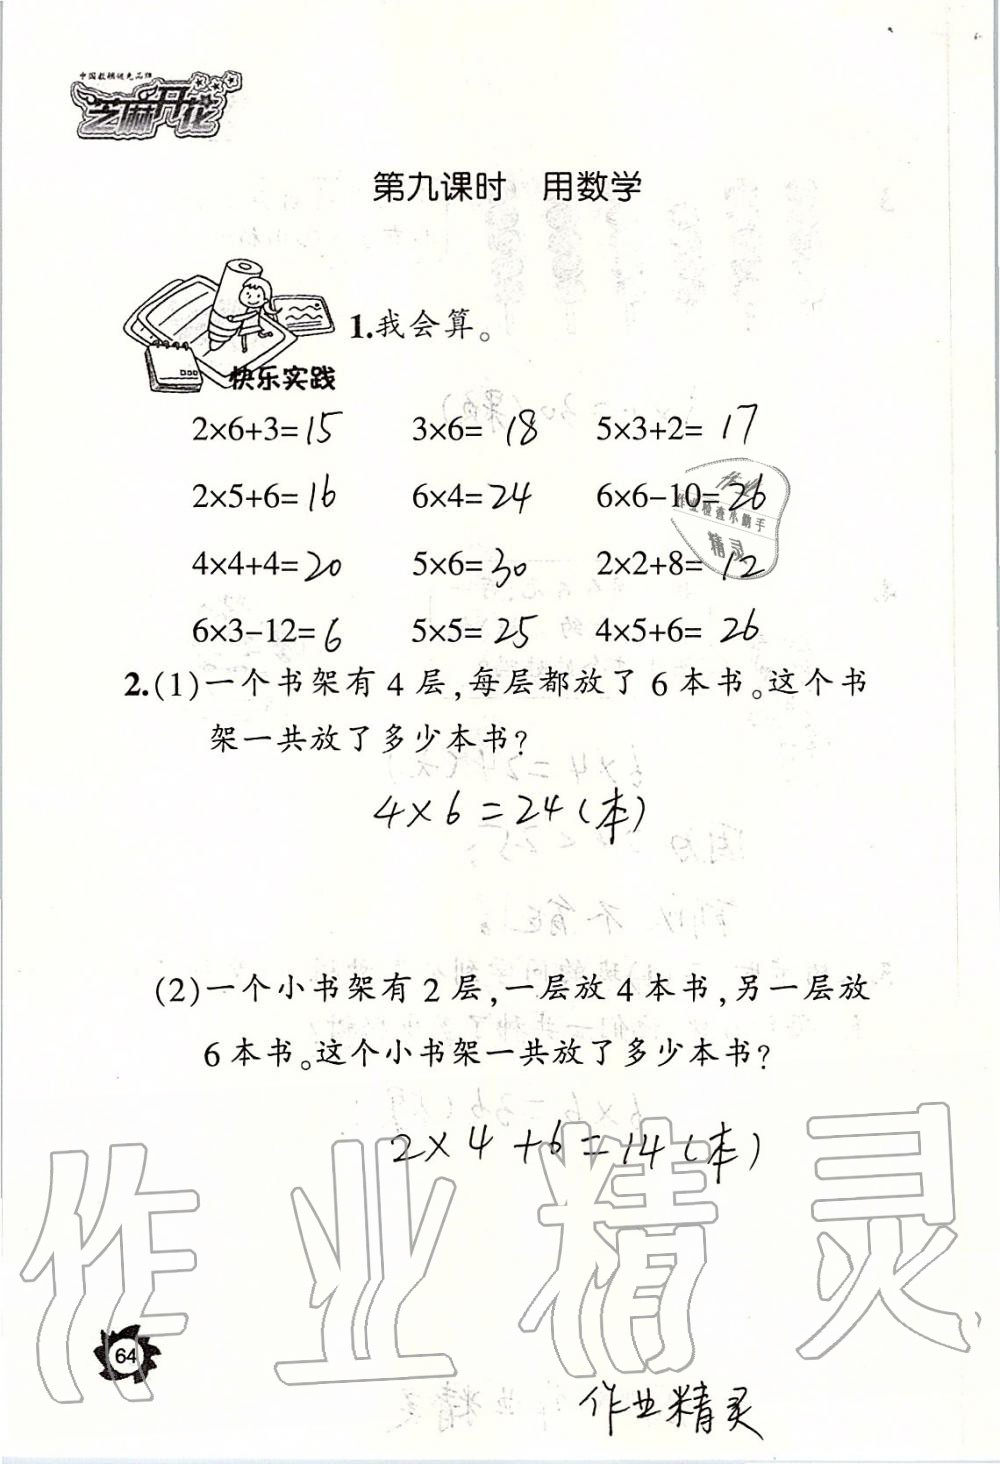 中国教辅优先品牌
芝麻开花
第九课时 用数学
1.我会算。
快乐实践
2×6+3=15 3×6=18 5×3+2=17
2×5+6=16 6×4=24 6×6-10=26
4×4+4=20 5×6=30 2×2+8=12
6×3-12=6 5×5=25 4×5+6=26
作业
作业检查小助手
精灵
2.(1)一个书架有4层,每层都放了6本书。这个书
架一共放了多少本书?
4×6=24(本)
(2)一个小书架有2层,一层放4本书,另一层放
6本书。这个小书架一共放了多少本书?
2×4+6=14(本)
作业精灵
64
作业精灵